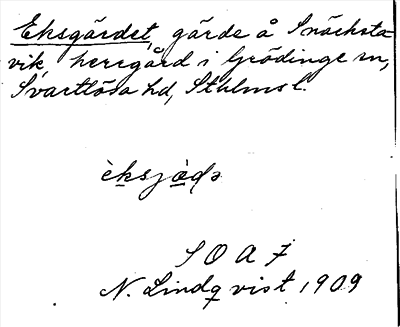 Eksgärdet, gärde å Snäcksta-
vik, herrgård i Grödinge sn,
Svartlösa hd, Sthlms l.
èksjæ̀ḍə
S O A F
N. Lindqvist, 1909